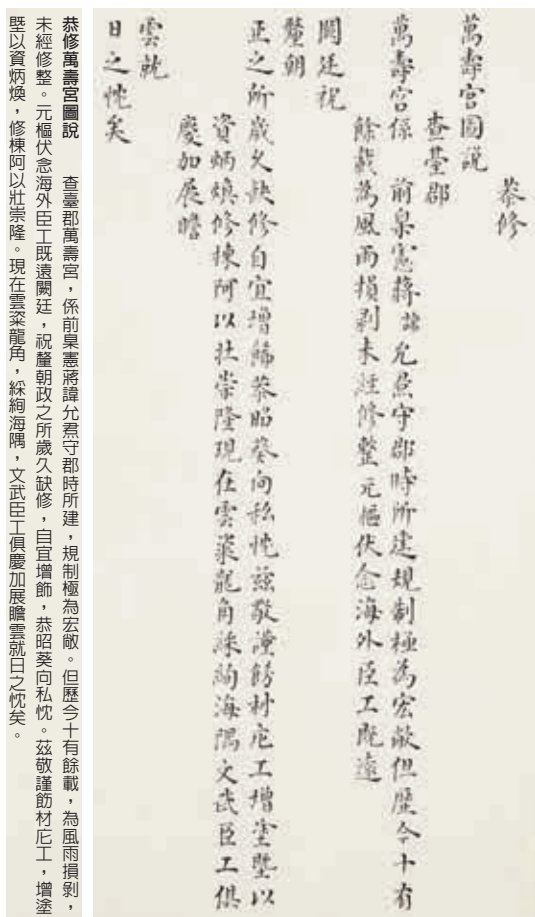 恭修
萬壽宮圖說
查臺郡
萬壽宮係 前臬憲蔣諱允焄守郡時所建規制極為宏敞但歷今十有
餘載為風雨損剝未經修整元樞伏念海外臣工既遠
闕廷祝
釐朝
正之所歲久缺修自宜增飾恭昭葵向私忱茲敬謹飭材庀工增塗塈以
資炳煥修棟阿以壯崇隆現在雲粢龍角綵絢海隅文武臣工俱
慶加展瞻
雲就
日之忱矣
恭修萬壽宮圖說 查臺郡萬壽宮,係前臬憲蔣諱允焄守郡時所建,規制極為宏敞。但歷今十有餘載,為風雨損剝,
未經修整。元樞伏念海外臣工既遠闕廷,祝釐朝政之所歲久缺修,自宜增飾,恭昭葵向私忱。茲敬謹飭材庀工,增塗
塈以資炳煥,修棟阿以壯崇隆。現在雲粢龍角,綵絢海隅,文武臣工俱慶加展瞻雲就日之忱矣。